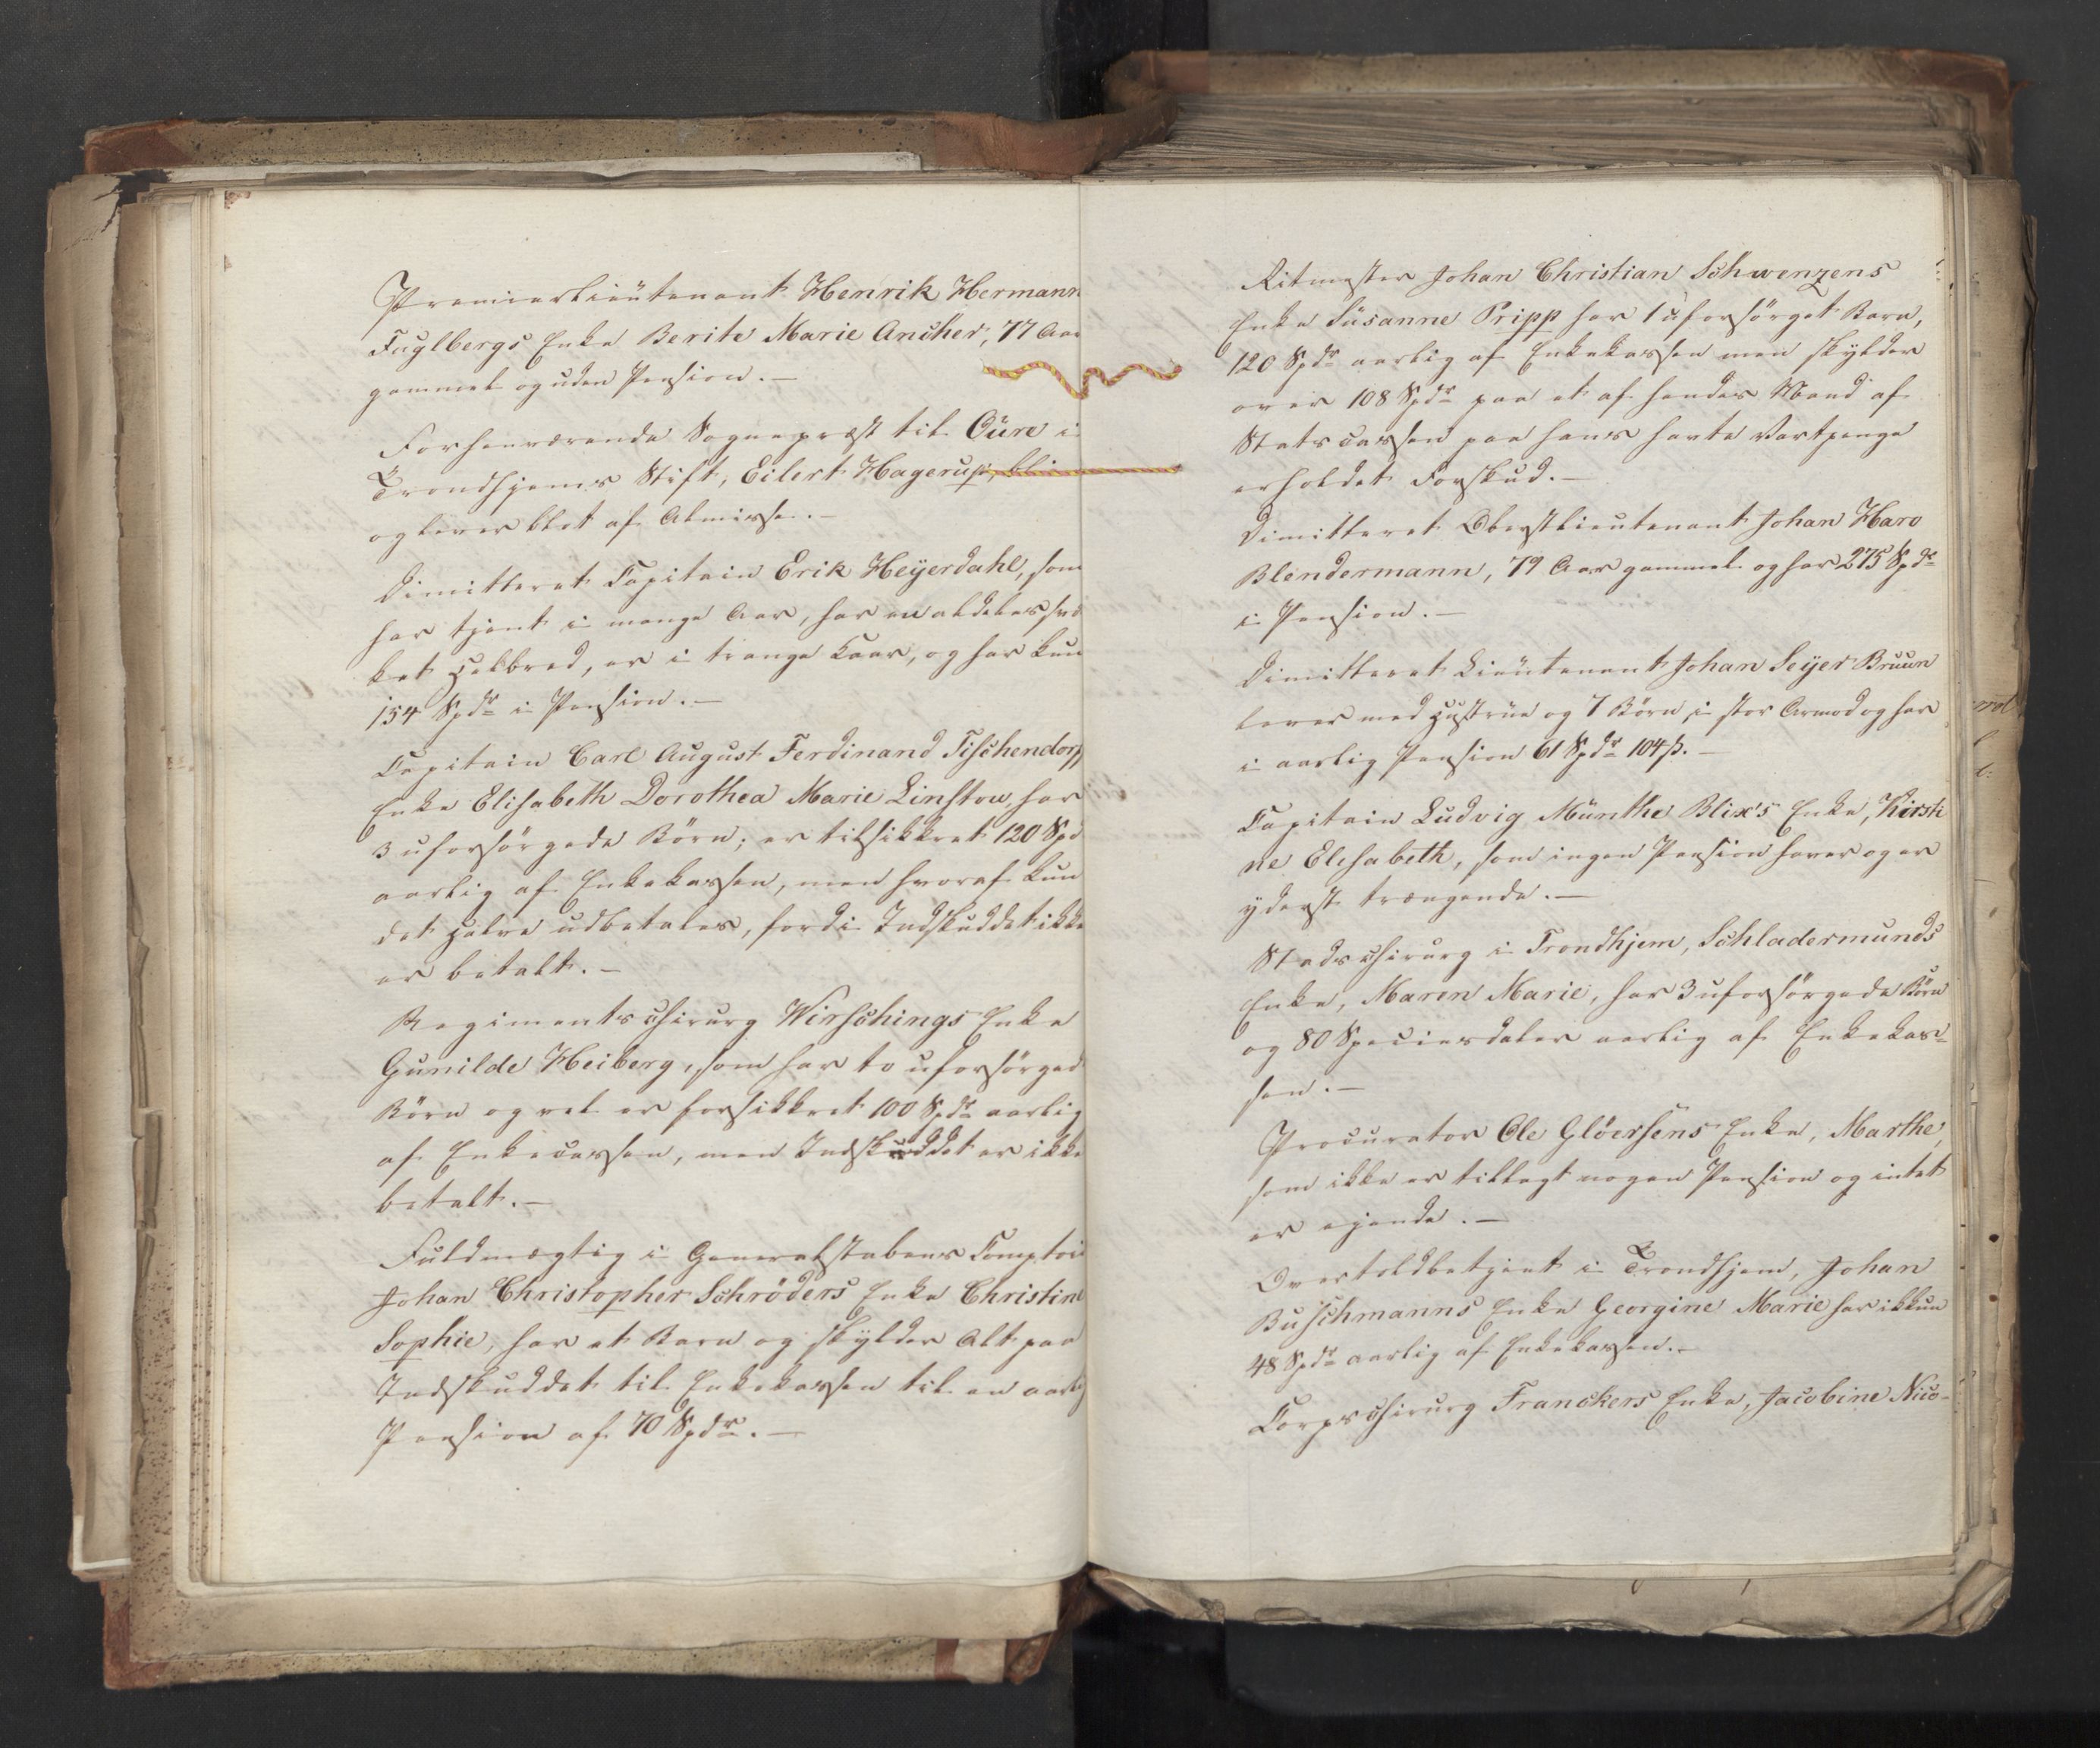 Premierlieutenant Henrik Hermann
Fuglbergs Enke Berite Marie Ancher, 77 Aar
gammel og uden Pension.—
Forhenværende Sognepræst til Oüre i
Trondhjems Stift, Eilert Hagerup, bli
og lever blot af Almisse.—
Dimitteret Capitain Erik Heÿerdahl, som
har tjent i mange Aar, har en aldeles svæ
ket Helbred, er i trange Kaar, og har kun
154 Spdr i Pension.—
Capitain Carl August Ferdinand Tischendorf
Enke Elisabeth Dorothea Marie Linstow, har
3 uforsörgede Börn; er tilsikkret 120 Spd
aarlig af Enkekassen, men hvoraf kun
det Halve udbetales, fordi Indskuddet ikke
er betalt.—
Regimentschirurg Wirschings Enke
Gunilde Heiberg, som har to uforsörged
Börn og vel er forsikkret 100 Spdr aarlig
af Enkecassen, men Indskuddet er ikke
betalt.—
Fuldmægtig i Generalstabens Comptoi
Johan Christopher Schröders Enke Christine
Sophie, har et Barn og skÿlder Alt paa
Indskuddet til Enkekassen til en aarlig
Pension af 70 Spdr.—
Ritmester Johan Christian Schwenzens
Enke Süsanne Pripp har 1 uforsörget Barn,
120 Spdr aarlig af Enkekassen men skylder
over 108 Spdr paa et af hendes Mand af
Statscassen paa hans havte Vartpenge
erholdet Forskud.—
Dimitteret Oberstlieutenant Johan Haro
Blendermann, 79 Aar gammel og har 275 Spdr
i Pension.—
Dimitteret Lieutenant Johan Seÿer Bruun
lever med Hustrue og 7 Börn i stor Armod og har
i aarlig Pension 61 Spdr 104 ß.—
Capitain Ludvig Münthe Blix's Enke, Kirsti
ne Elisabeth, som ingen Pension haver og er
yderst trængende.—
Stadschirurg i Trondhjem, Schladermunds
Enke, Maren Marie, har 3 uforsörgede Börn
og 80 Speciesdaler aarlig af Enkekas=
sen.—
Procurator Ole Glöersens Enke, Marthe,
som ikke er tillagt nogen Pension og intet
er ejende.—
Overtoldbetjent i Trondhjem, Johan
Buschmanns Enke Georgine Marie har ikkun
48 Spdr aarlig af Enkekassen.—
Corpschirurg Franckers Enke, Jacobine Nico-